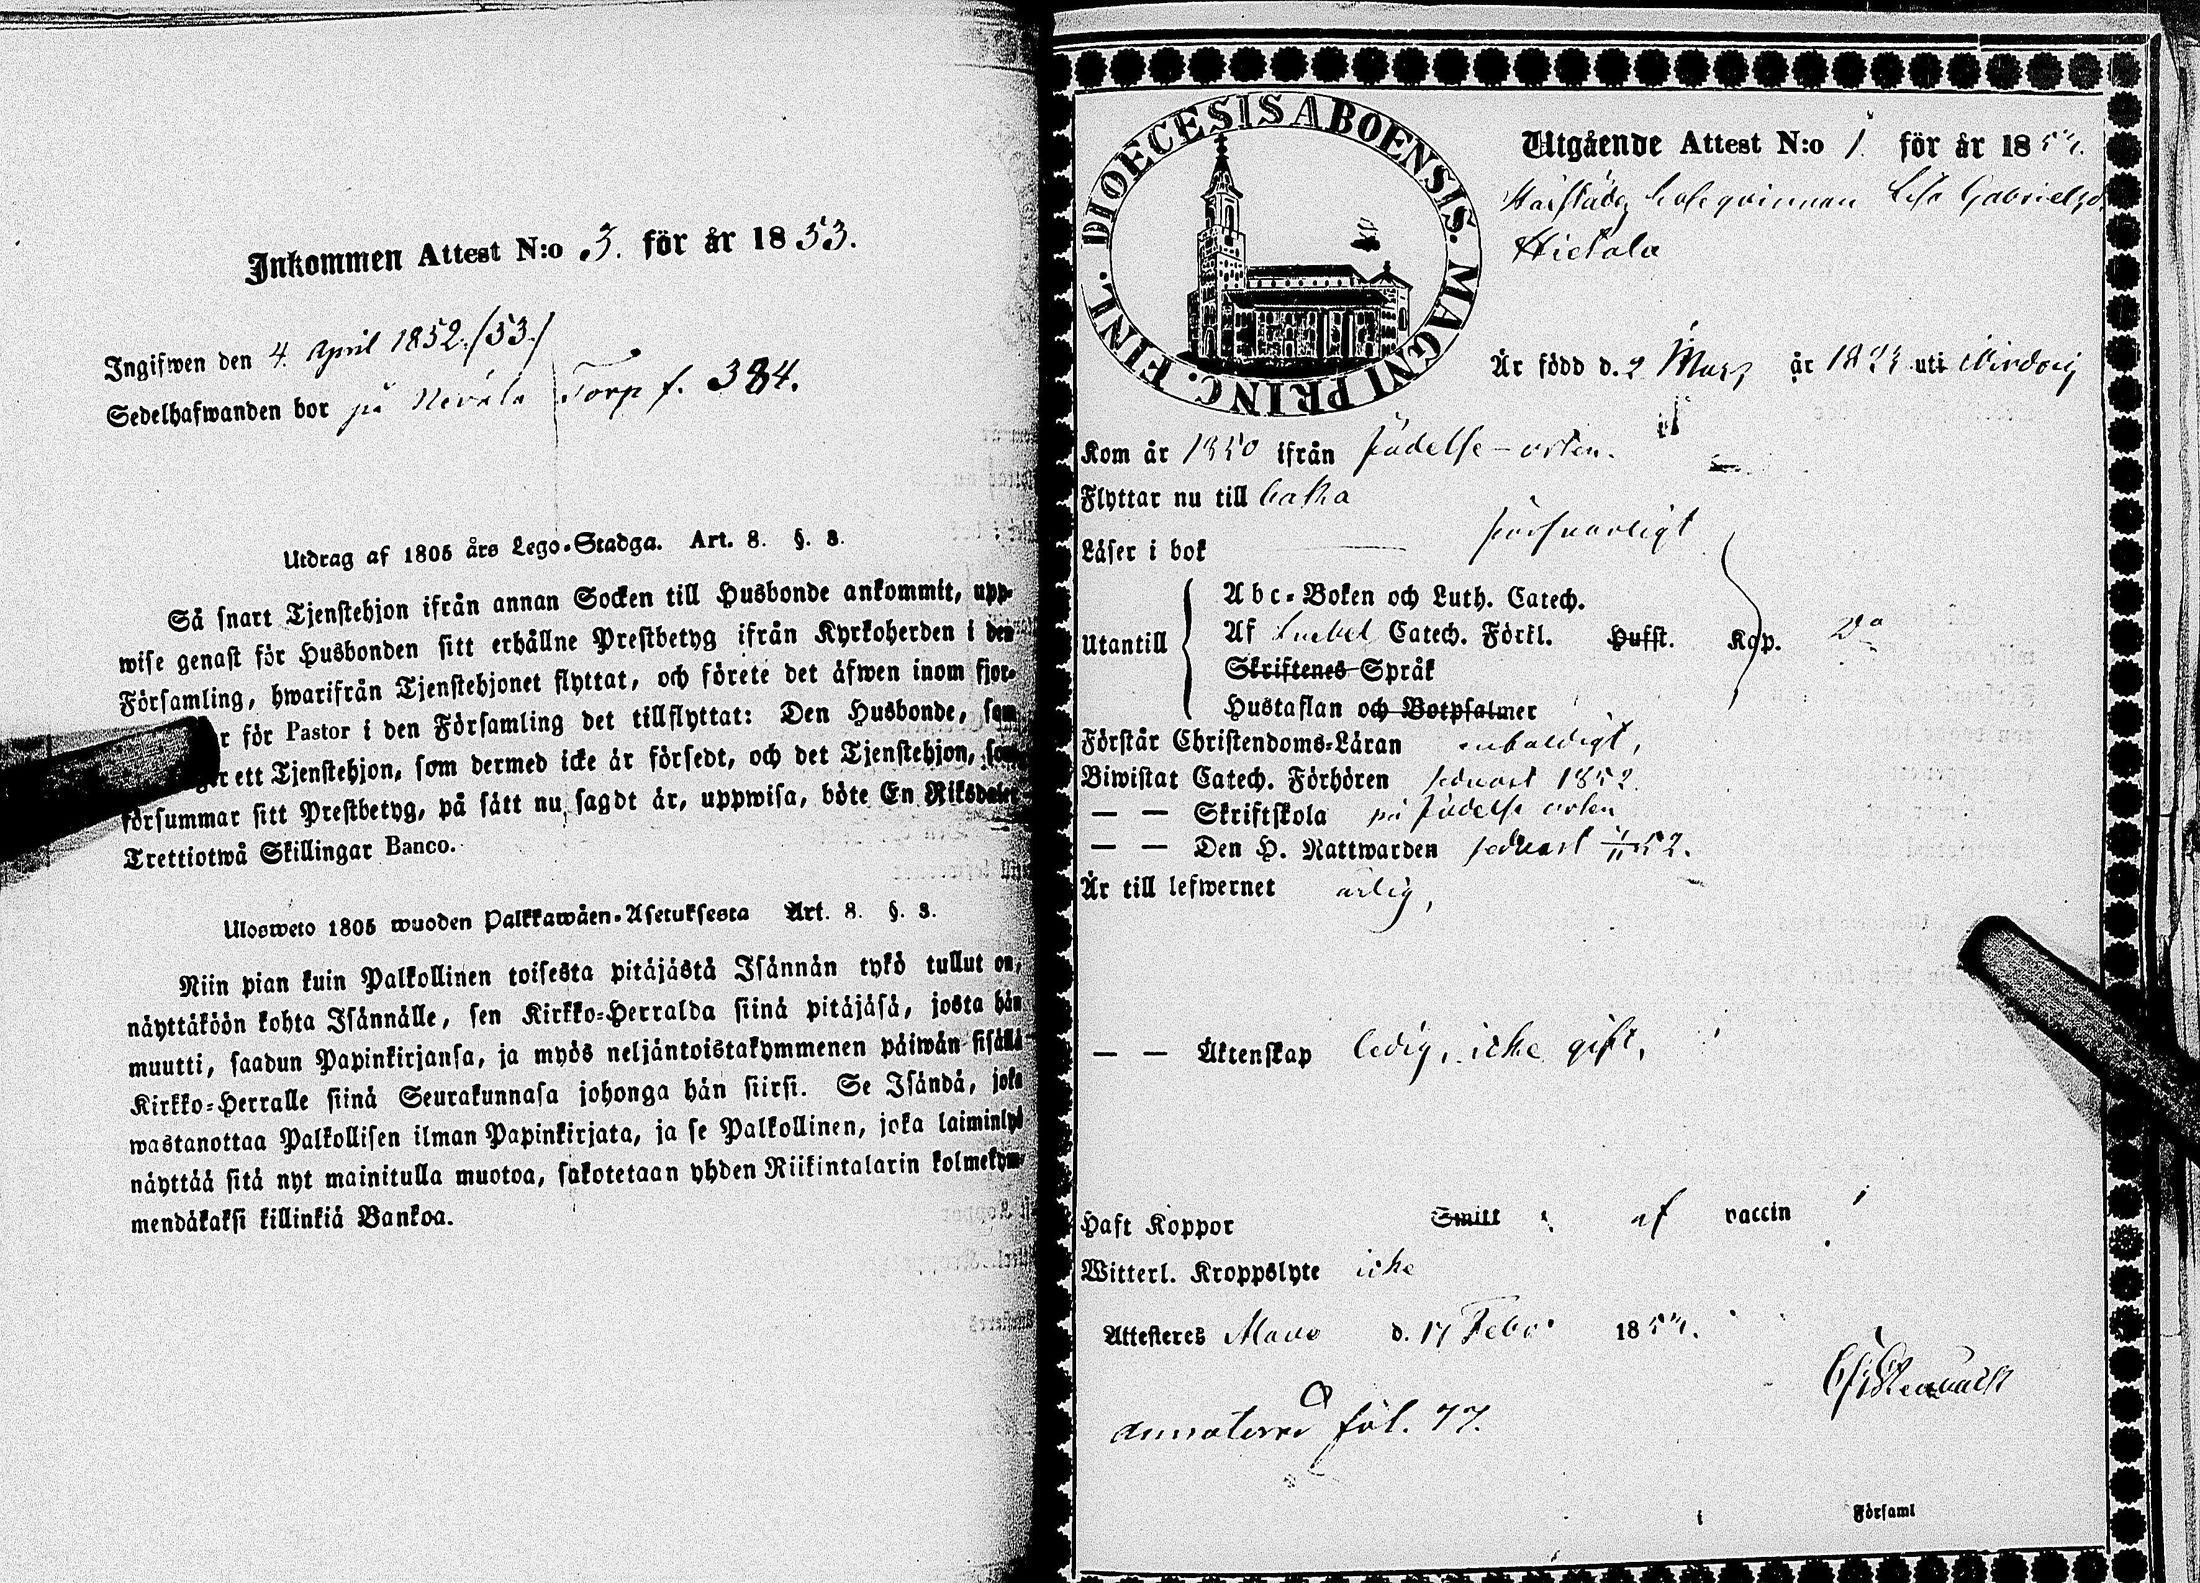 Inkommen Attest N:o 3. för år 1853.
Ingifwen den 4. April 1852./53./
Sedelhafwanden bor på Torp f. 384.
Utdrag af 1805 års Lego-Stadga. Art. 8. §. 3.
Så snart Tjenstehjon ifrån annan Socken till Husbonde ankommit, upp-
wise genast för Husbonden sitt erhållne Prestbetyg ifrån Kyrkoherden i den
Församling, hwarifrån Tjenstehjonet flyttat, och förete det äfwen inom fjor-
r för Pastor i den Församling det tillflyttat: Den Husbonde, som
ett Tjenstehjon, som dermed icke är försedt, och det Tjenstehjon, som
försummar sitt Prestbetyg, på sätt nu sagdt är, uppwisa, böte En Riksdaler
Trettiotwå Skillingar Banco.
Ulosweto 1805 wuoden Palkkawäen-Asetuksesta Art. 8. §. 3.
Niin pian kuin Palkollinen toisesta pitäjästä Isännän tykö tullut on,
näyttäköön kohta Isännälle, sen Kirkko-Herralda siinä pitäjäsä, josta hän
muutti, saadun Papinkirjansa, ja myös neljäntoistakymmenen päiwän sisällä
Kirkko-Herralle siinä Seurakunnasa johonga hän siirsi. Se Isändä, joka
wastanottaa Palkollisen ilman Papinkirjata, ja se Palkollinen, joka laiminlyö
näyttää sitä nyt mainitulla muotoa, sakotetaan yhden Riikintalarin kolmekym-
mendäkaksi killinkiä Bankoa.
DIOECESIS ABOENSIS. MAGNI PRINC. FINL.
Utgående Attest N:o 1. för år 185
Gabrielsd.
Hietala
Är född d. 2 Mars år 1823 uti
Kom år 1850 ifrån födelse-orten.
Flyttar nu till
Läser i bok försvarligt
Utantill
Abc-Boken och Luth. Catech.
Af Catech. Förkl. Hufst. Kap. Do
Skriftenes Språk
Hustaflan och Botpsalmer
Förstår Christendoms-Läran enfaldigt,
Biwistat Catech. Förhören sednast 1852.
— — Skriftskola på födelse orten
— — Den H. Nattwarden sednast 52.
Är till lefwernet ärlig,
— — Äktenskap ledig, icke gift,
Haft Koppor Smitt af vaccin
Witterl. Kroppslyte icke
Attesteres d. 17 Febr. 185
annoterad fol. 77.
Församl